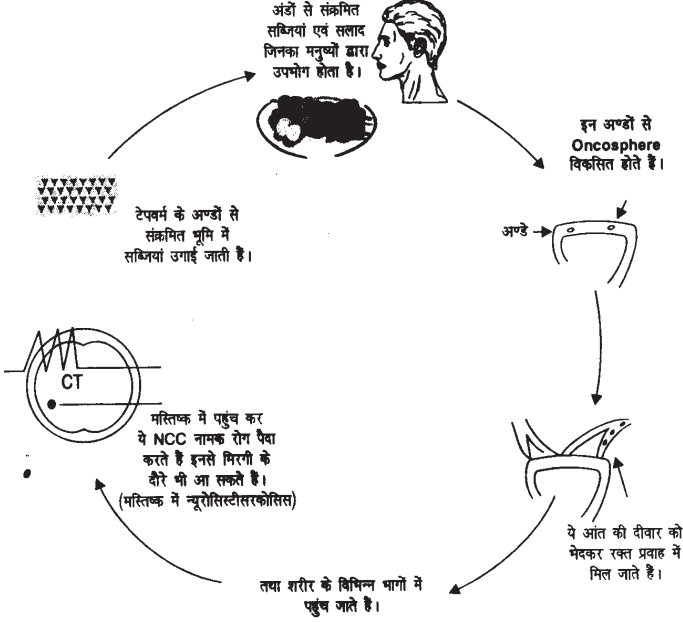 अंडों से संक्रमित
सब्जियां एवं सलाद
जिनका मनुष्यों द्वारा
उपभोग होता है।
इन अण्डों से
Oncosphere
विकसित होते हैं।
अण्डे
ये आंत की दीवार को
भेदकर रक्त प्रवाह में
मिल जाते हैं।
तथा शरीर के विभिन्न भागों में
पहुंच जाते हैं।
CT
मस्तिष्क में पहुंच कर
ये NCC नामक रोग पैदा
करते हैं इनसे मिरगी के
दौरे भी आ सकते हैं।
(मस्तिष्क में न्यूरोसिस्टीसरकोसिस)
टेपवर्म के अण्डों से
संक्रमित भूमि में
सब्जियां उगाई जाती हैं।